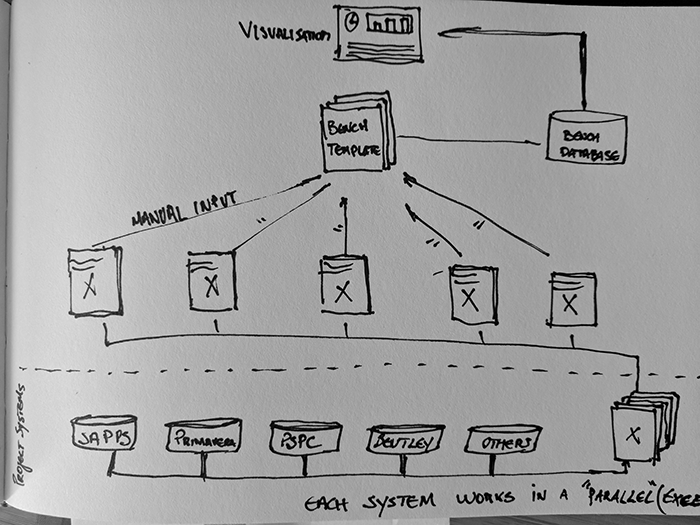 VISUALISATION
BENCH
TEMPLATE
BENCH
DATABASE
MANUAL INPUT
"
"
"
"
X
X
X
X
X
PROJECT SYSTEMS
PRIMAVERA
PSPC
OTHERS
X
EACH SYSTEM WORKS IN A "PARALLEL"